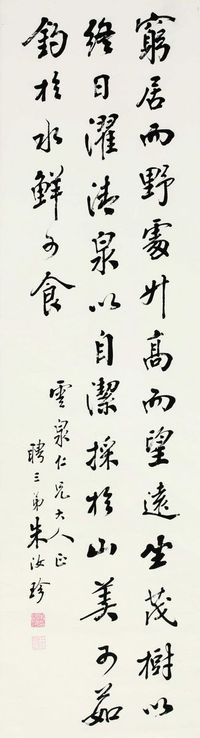 窮居而野處升高而望遠坐茂樹以
終日濯清泉以自潔採於山美可茹
釣於水鮮可食
雲泉仁兄大人正
聘三弟朱汝珍